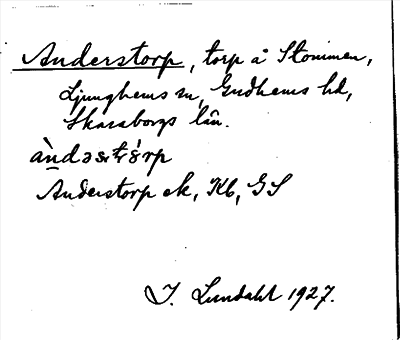 Anderstorp, torp å Stommen,
Ljunghems sn, Gudhems hd,
Skaraborgs län.
àndəstórp
Anderstorp ek, Kb, GS
I. Lundahl 1927.